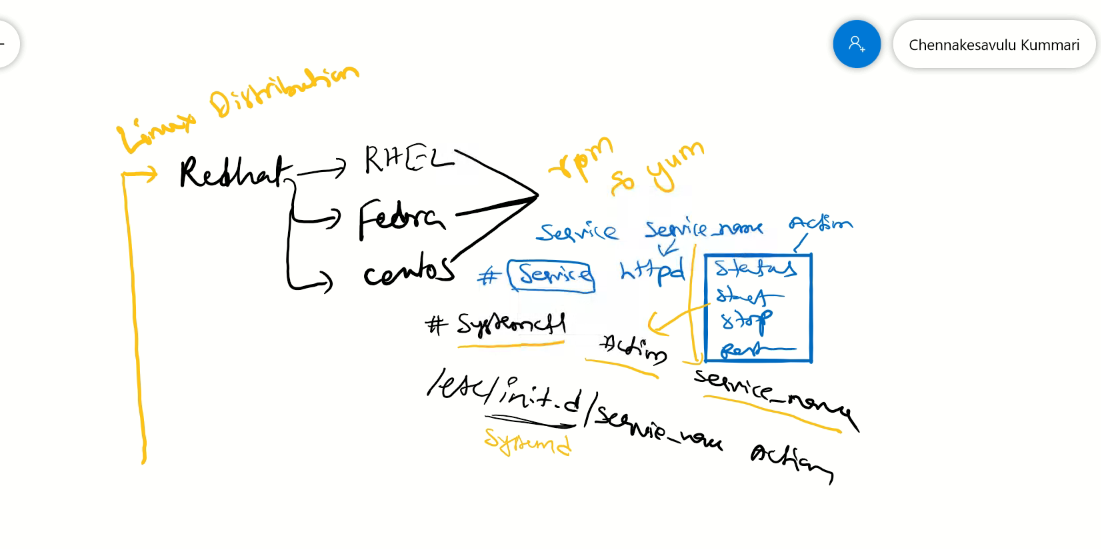 Chennakesavulu Kummari
Linux Distribution
Redhat
RHEL
Fedora
centos
rpm
so yum
Service Service_name Action
# Service httpd
Status
start
stop
Rest
# Systemctl Action service_name
/etc/init.d/service_name Action
Systemd